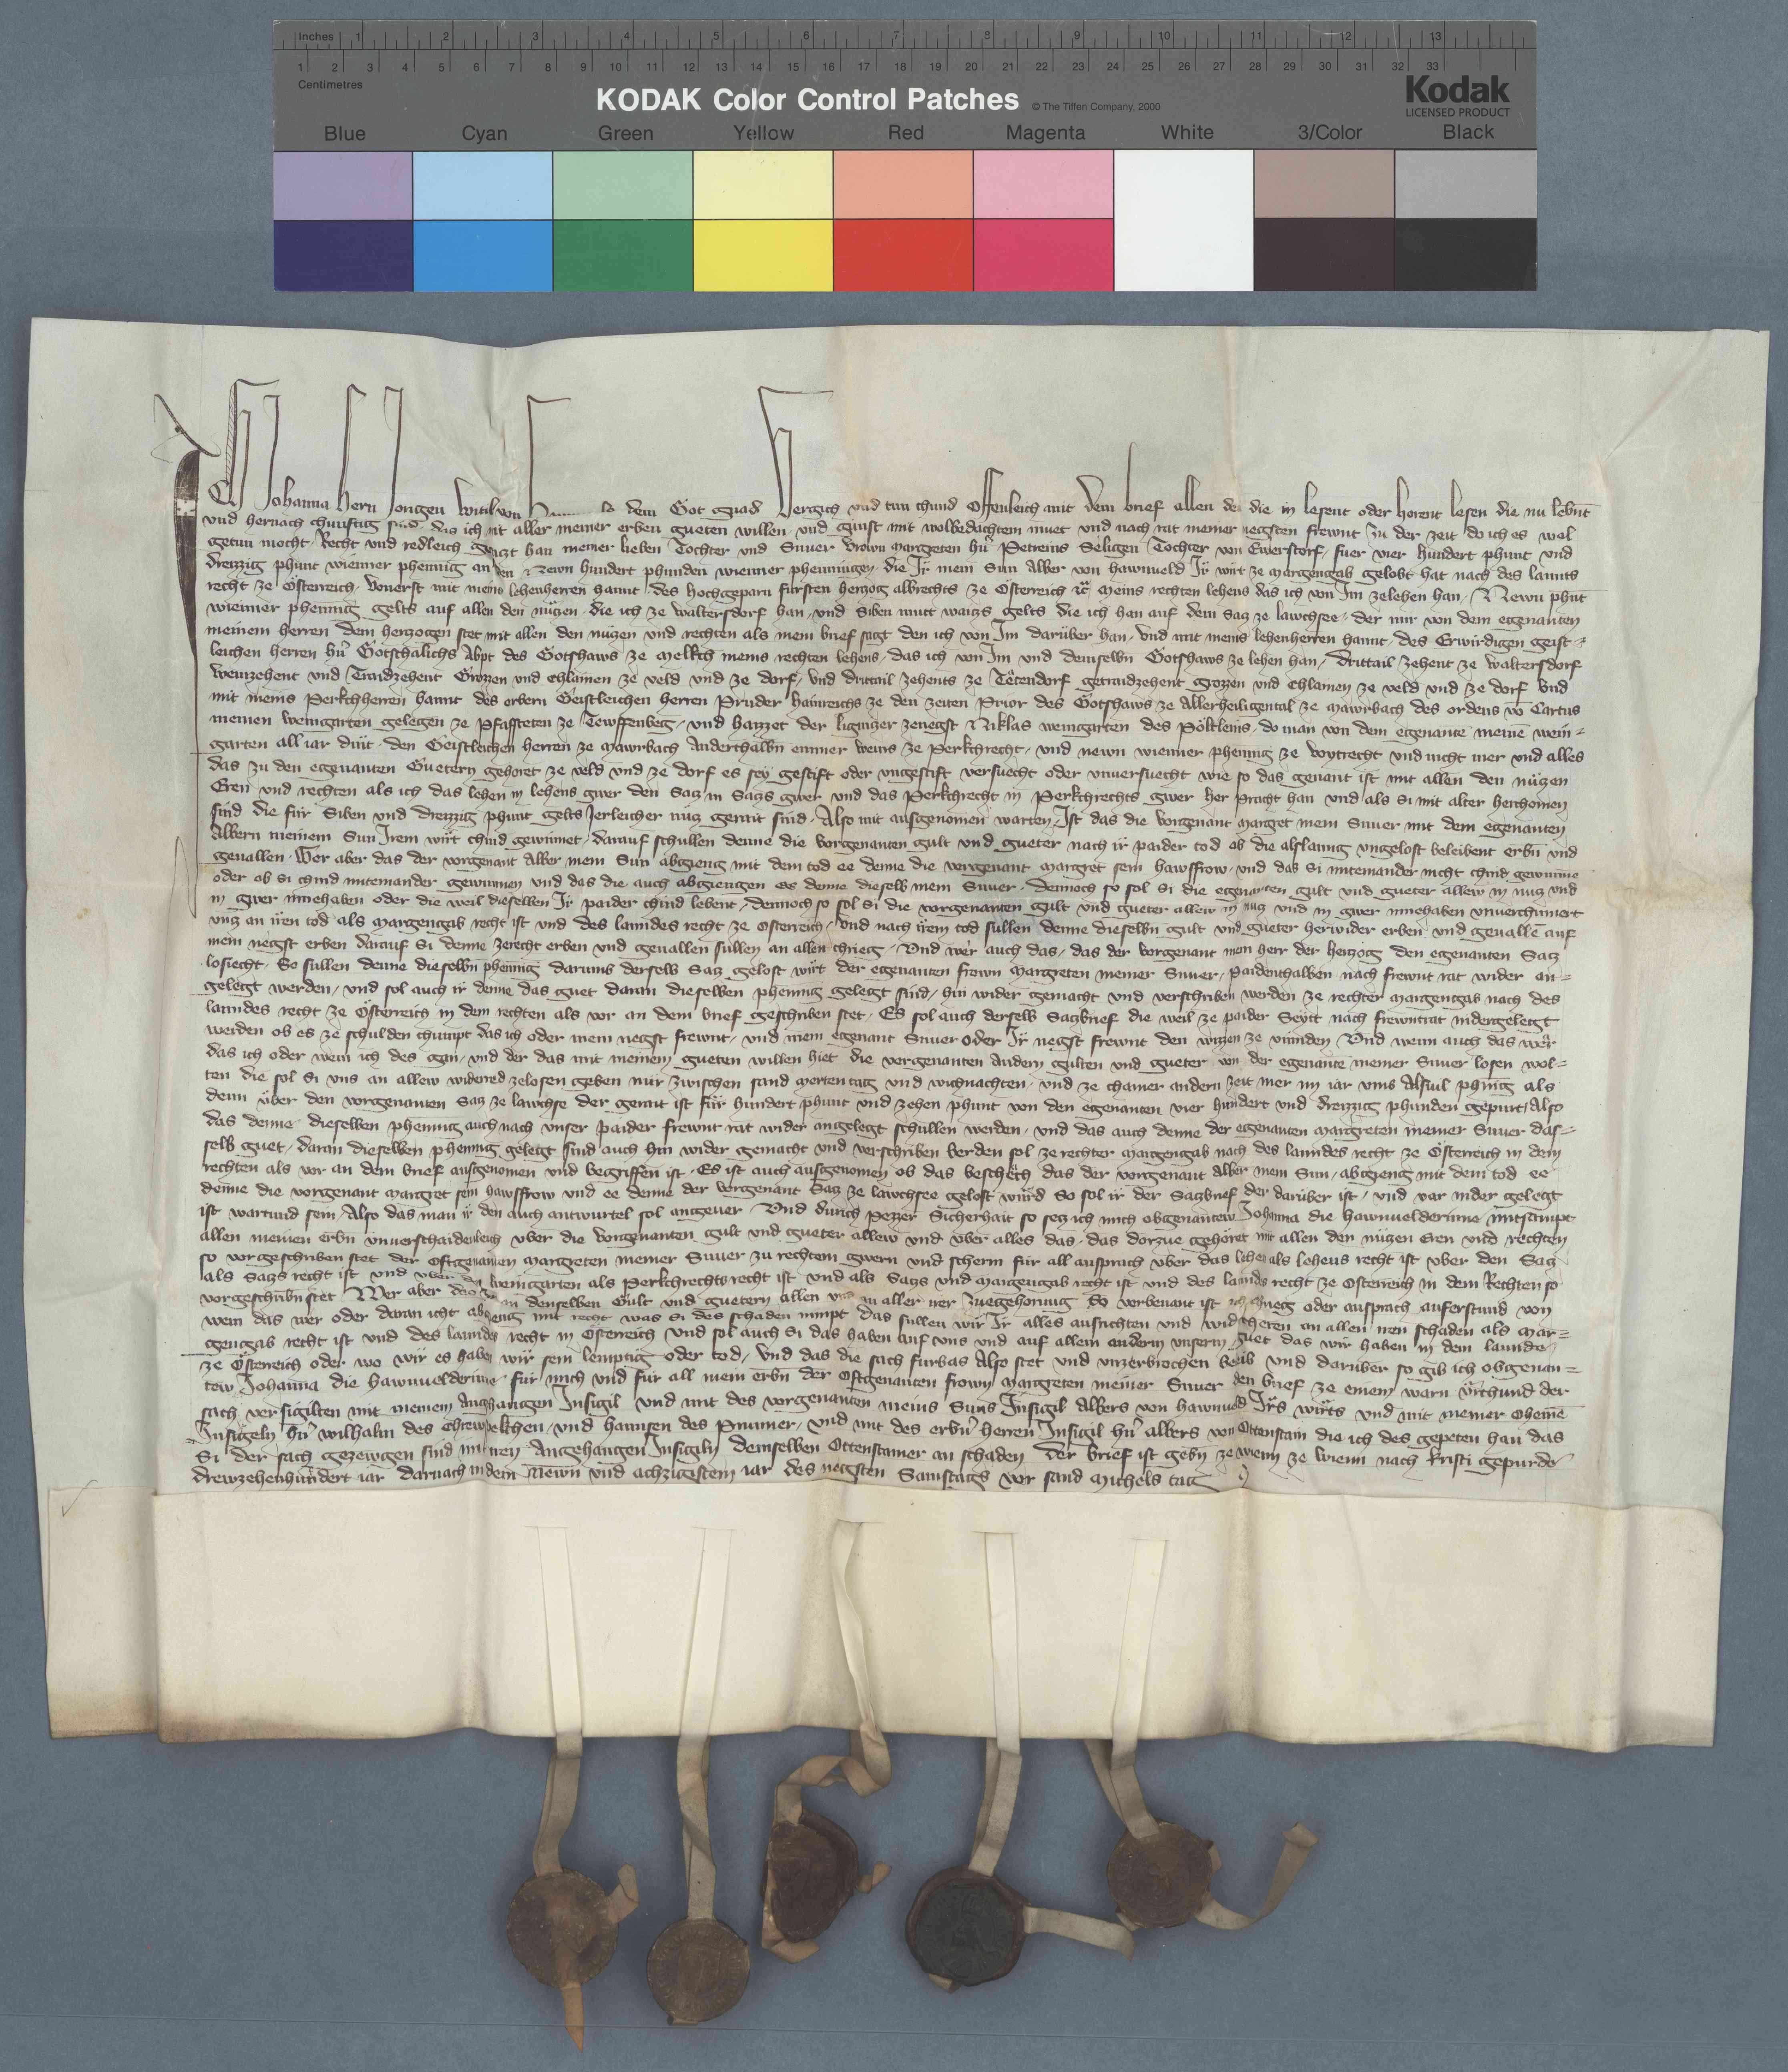 Inches 1 2 3 4 5 6 7 8 9 10 11 12 13
1 2 3 4 5 6 7 8 9 10 11 12 13 14 15 16 17 18 19 20 21 22 23 24 25 26 27 28 29 30 31 32 33
Centimetres
KODAK Color Control Patches © The Tiffen Company, 2000
Kodak
LICENSED PRODUCT
Blue Cyan Green Yellow Red Magenta White 3/Color Black
Ich Johanna hern Jorigen Witib von dem Got gnad Vergich und tun chund Offenleich mit dem brief allen den die in lesent oder horent lesen die nu lebnt
und hernach chunftig sind das ich mit aller meiner erben gueten willen und gunst mit wolbedachtem muet und nach rat meiner negsten frewnt zu der zeit do ich es wol
getun mocht Recht und redleich han meiner lieben Tochter und Snuer vrown Margreten hern Petreins Seligen Tochter von Ewerstorf fuer vier hundert phunt und
dreizzig phunt wienner phennig an den Newn hundert phunden wienner phenningen die Ir mein Sun Alber von hawnveld Ir wirt ze margengab gelobt hat nach des lannts
recht ze Österreich vonerst mit meins lehenherren hannt des hochgeparn fürsten herzog albrechts ze Österreich etc meins rechten lehens das ich von Im zelehen han Newn phunt
wienner phennig gelts auf allen den nüzen die ich ze waltersdorf han und Siben mutt waizs gelts die ich han auf dem Saz ze lawchsee der mir von dem egenanten
meinem herren dem herzogen stet mit allen den nüzen und rechten als mein brief sagt den ich von Im darüber han und mit meins lehenherren hannt des Erwirdigen geist=
leichen herren hern Götschalichs Abpt des Gotshaws ze Melkch meins rechten lehens das ich von Im und demselbn Gotshaws ze lehen han Drittail zehent ze waltersdorf
Weinzehent und Traidzehent Grozzen und chlainen ze veld und ze dorf und drittail zehents ze Tetendorf getraidzehent grozzen und chlainen ze veld und ze dorf und
mit meins Perkchherren hannt des erbern Geistleichen herren Pruder hainreichs ze den zeiten Prior des Gotshaws ze Allerheiligental ze Mawrbach des ordens von Cartus
meinen weingarten gelegen ze Pfaffsteten ze Tewffenweg und hazzet der zenegst Niklas weingarten des Pöltleins do man von dem egenanten meinen wein=
garten all iar dint den Geistleichen herren ze Mawrbach Anderthalbn emmer weins ze Perkchrecht und newn wienner phennig ze voytrecht und nicht mer und alles
das zu den egenanten Guetern gehoret ze veld und ze dorf es sey gestift oder ungestift versuecht oder unversuecht wie so das genant ist mit allen den nüzen
Eren und rechten als ich das lehen in lehens gwer den Saz in Sazs gwer und das Perkchrecht in Perkchrechts gwer her pracht han und als si mit alter herchomen
sind die für Siben und dreizzig phunt gelts Jerleicher nüz gerait sind Also mit ausgenomen warten Ist das die vorgenant Margret mein Snuer mit dem egenanten
Albern meinem Sun Irem wirt chind gewinnet darauf schullen denne die vorgenanten gult und gueter nach ir paider tod ob die unglost beleibent erbn und
gevallen Wer aber das der vorgenant Alber mein Sun abgieng mit dem tod ee denne die vorgenant Margret sein hawsfrow und das si miteinander nicht chind gewunne
oder ob si chind miteinander gewunnen und das die auch abgiengen ee denne dieselb mein Snuer dennoch so sol Si die egenanten gult und gueter allew in nuz und
in gwer innehaben oder die weil dieselben Ir paider chind lebent dennoch so sol Si die vorgenanten gult und gueter allew in nuz und in gwer innehaben unverchumert
unz an iren tod als margengab recht ist und des lanndes recht ze Osterreich und nach irem tod sullen denne dieselbn gult und gueter herwider erben und gevallen auf
mein negst erben darauf Si denne zerecht erben und gevallen sullen an allen chrieg Und wer auch das das der vorgenant mein herr der herzog den egenanten Saz
losiecht So sullen denne dieselbn phennig darums derselb Saz gelost wirt der egenanten frown Margreten meiner Snuer paidenthalben nach frewnt rat wider an=
gelegt werden und sol auch ir denne das guet daran dieselben phennig gelegt sind hin wider gemacht und verschriben werden ze rechter margengab nach des
lanndes recht ze Österreich in dem rechten als vor an dem brief geschriben stet Es sol auch derselb Sazbrief die weil ze paider Seytt nach frewntrat nidergelegt
werden ob es ze schulden chumpt das ich oder mein negst frewnt und mein egenant Snuer oder Ir negst frewnt den wizzen ze vinden Und wenn auch das wer
das ich oder wem ich des gan und der das mit meinem gueten willen hiet die vorgenanten andern gulten und gueter von der egenante meiner Snuer losen wol=
ten die sol Si uns an allew widerred zelosen geben nur zwischen sand Merten tag und weichnachten und ze chainer andern zeit mer im iar ums Alsvil phennig als
denn über den vorgenanten Saz ze lawchse der gerait ist für hundert phunt und zehen phunt von den egenanten vier hundert und dreizzig phunden gepurt Also
das denne dieselben phennig auch nach unser paider frewnt rat wider angelegt schullen werden und das auch denne der egenanten Margreten meiner Snuer das=
selb guet daran dieselben phennig gelegt sind auch hin wider gemacht und verschriben werden sol ze rechter margengab nach des lanndes recht ze Österreich in dem
rechten als vor an dem brief ausgenomen und begriffen ist Es ist auch ausgenomen ob das beschech das der vorgenant Alber mein Sun abgieng mit dem tod ee
denne die vorgenant Margret sein hawsfrow und ee denne der vorgenant Saz ze lawchsee gelost würd So sol ir der Sazbrief der darüber ist und vor nider gelegt
ist wartund sein Also das man ir den auch antwurten sol angever Und durch pezzer Sicherhait so sez ich mich obgenantew Johanna die hawnvelderinne mitsampt
allen meinen erbn unverschaidenleich uber die vorgenanten gult und gueter allew und uber alles das das dorzue gehöret mit allen den nüzen Eren und rechten
so vorgeschriben stet der Oftgenanten Margreten meiner Snuer zu rechtem gwern und scherm für all ansprach uber das lehen als lehens recht ist uber den Saz
als Sazs recht ist und uber den weingarten als Perkchrechts recht ist und als Sazs und Margengab recht ist und des lanndes recht ze Osterreich in dem Rechten so
vorgeschribn stet Wer aber das an denselben Gult und guetern allen in aller irer zuegehörung So vorbenant ist chrieg oder ansprach auferstund von
wem das wer oder daran icht abgieng mit recht was si des schaden nimpt das sullen wir Ir alles ausrichten und widercheren an allen iren schaden als mar=
gengab recht ist und des lanndes recht in Österreich und sol auch Si das haben auf uns und auf allem anderm unserm guet das wir haben in dem lannde
ze Österreich oder wo wir es haben wir sein lemptig oder tod Und das die sach furbas Also stet und unzerbrochen beleib und darüber so gib ich obgenan=
tew Johanna die hawnvelderinne für mich und für all mein erbn der Oftgenanten frown Margreten meiner Snuer den brief ze einem warn urchund der
sach versigilten mit meinem Anghangen Insigil und mit des vorgenanten meins Suns Insigil Albers von hawnveld Irs wirts und mit meiner Oheime
Insigeln hern wilhalm des und hannsen des und mit des erbern herren Insigil hern albers von Ottenstain die ich des gepeten han das
Si der sach gezewgen sind mit iren Angehangen Insigiln demselben Ottenstainer an schaden Der brief ist gebn ze wienn nach Kristi gepurde
drewzehenhundert iar darnach in dem Newn und achzigistem iar des negsten Samstags vor sand Michels tag